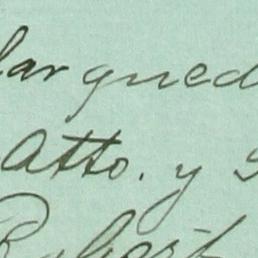 lar qued
Atto. y S
Robert